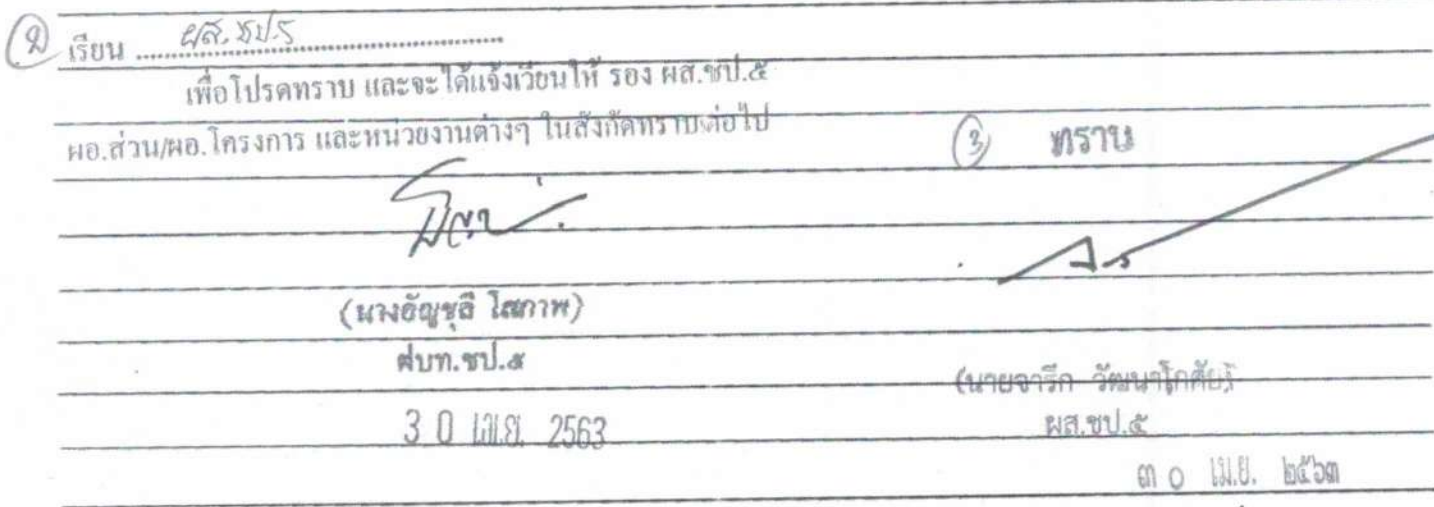 ② เรียน ผส.ชป.5
เพื่อโปรดทราบ และจะได้แจ้งเวียนให้ รอง ผส.ชป.๕
ผอ.ส่วน/ผอ.โครงการ และหน่วยงานต่างๆ ในสังกัดทราบต่อไป
(นางอัญชุลี โสภาพ)
ฝบท.ชป.๕
3 0 เม.ย. 2563
③ ทราบ
(นายจารึก วัฒนาโกศัย)
ผส.ชป.๕
๓ ๐ เม.ย. ๒๕๖๓